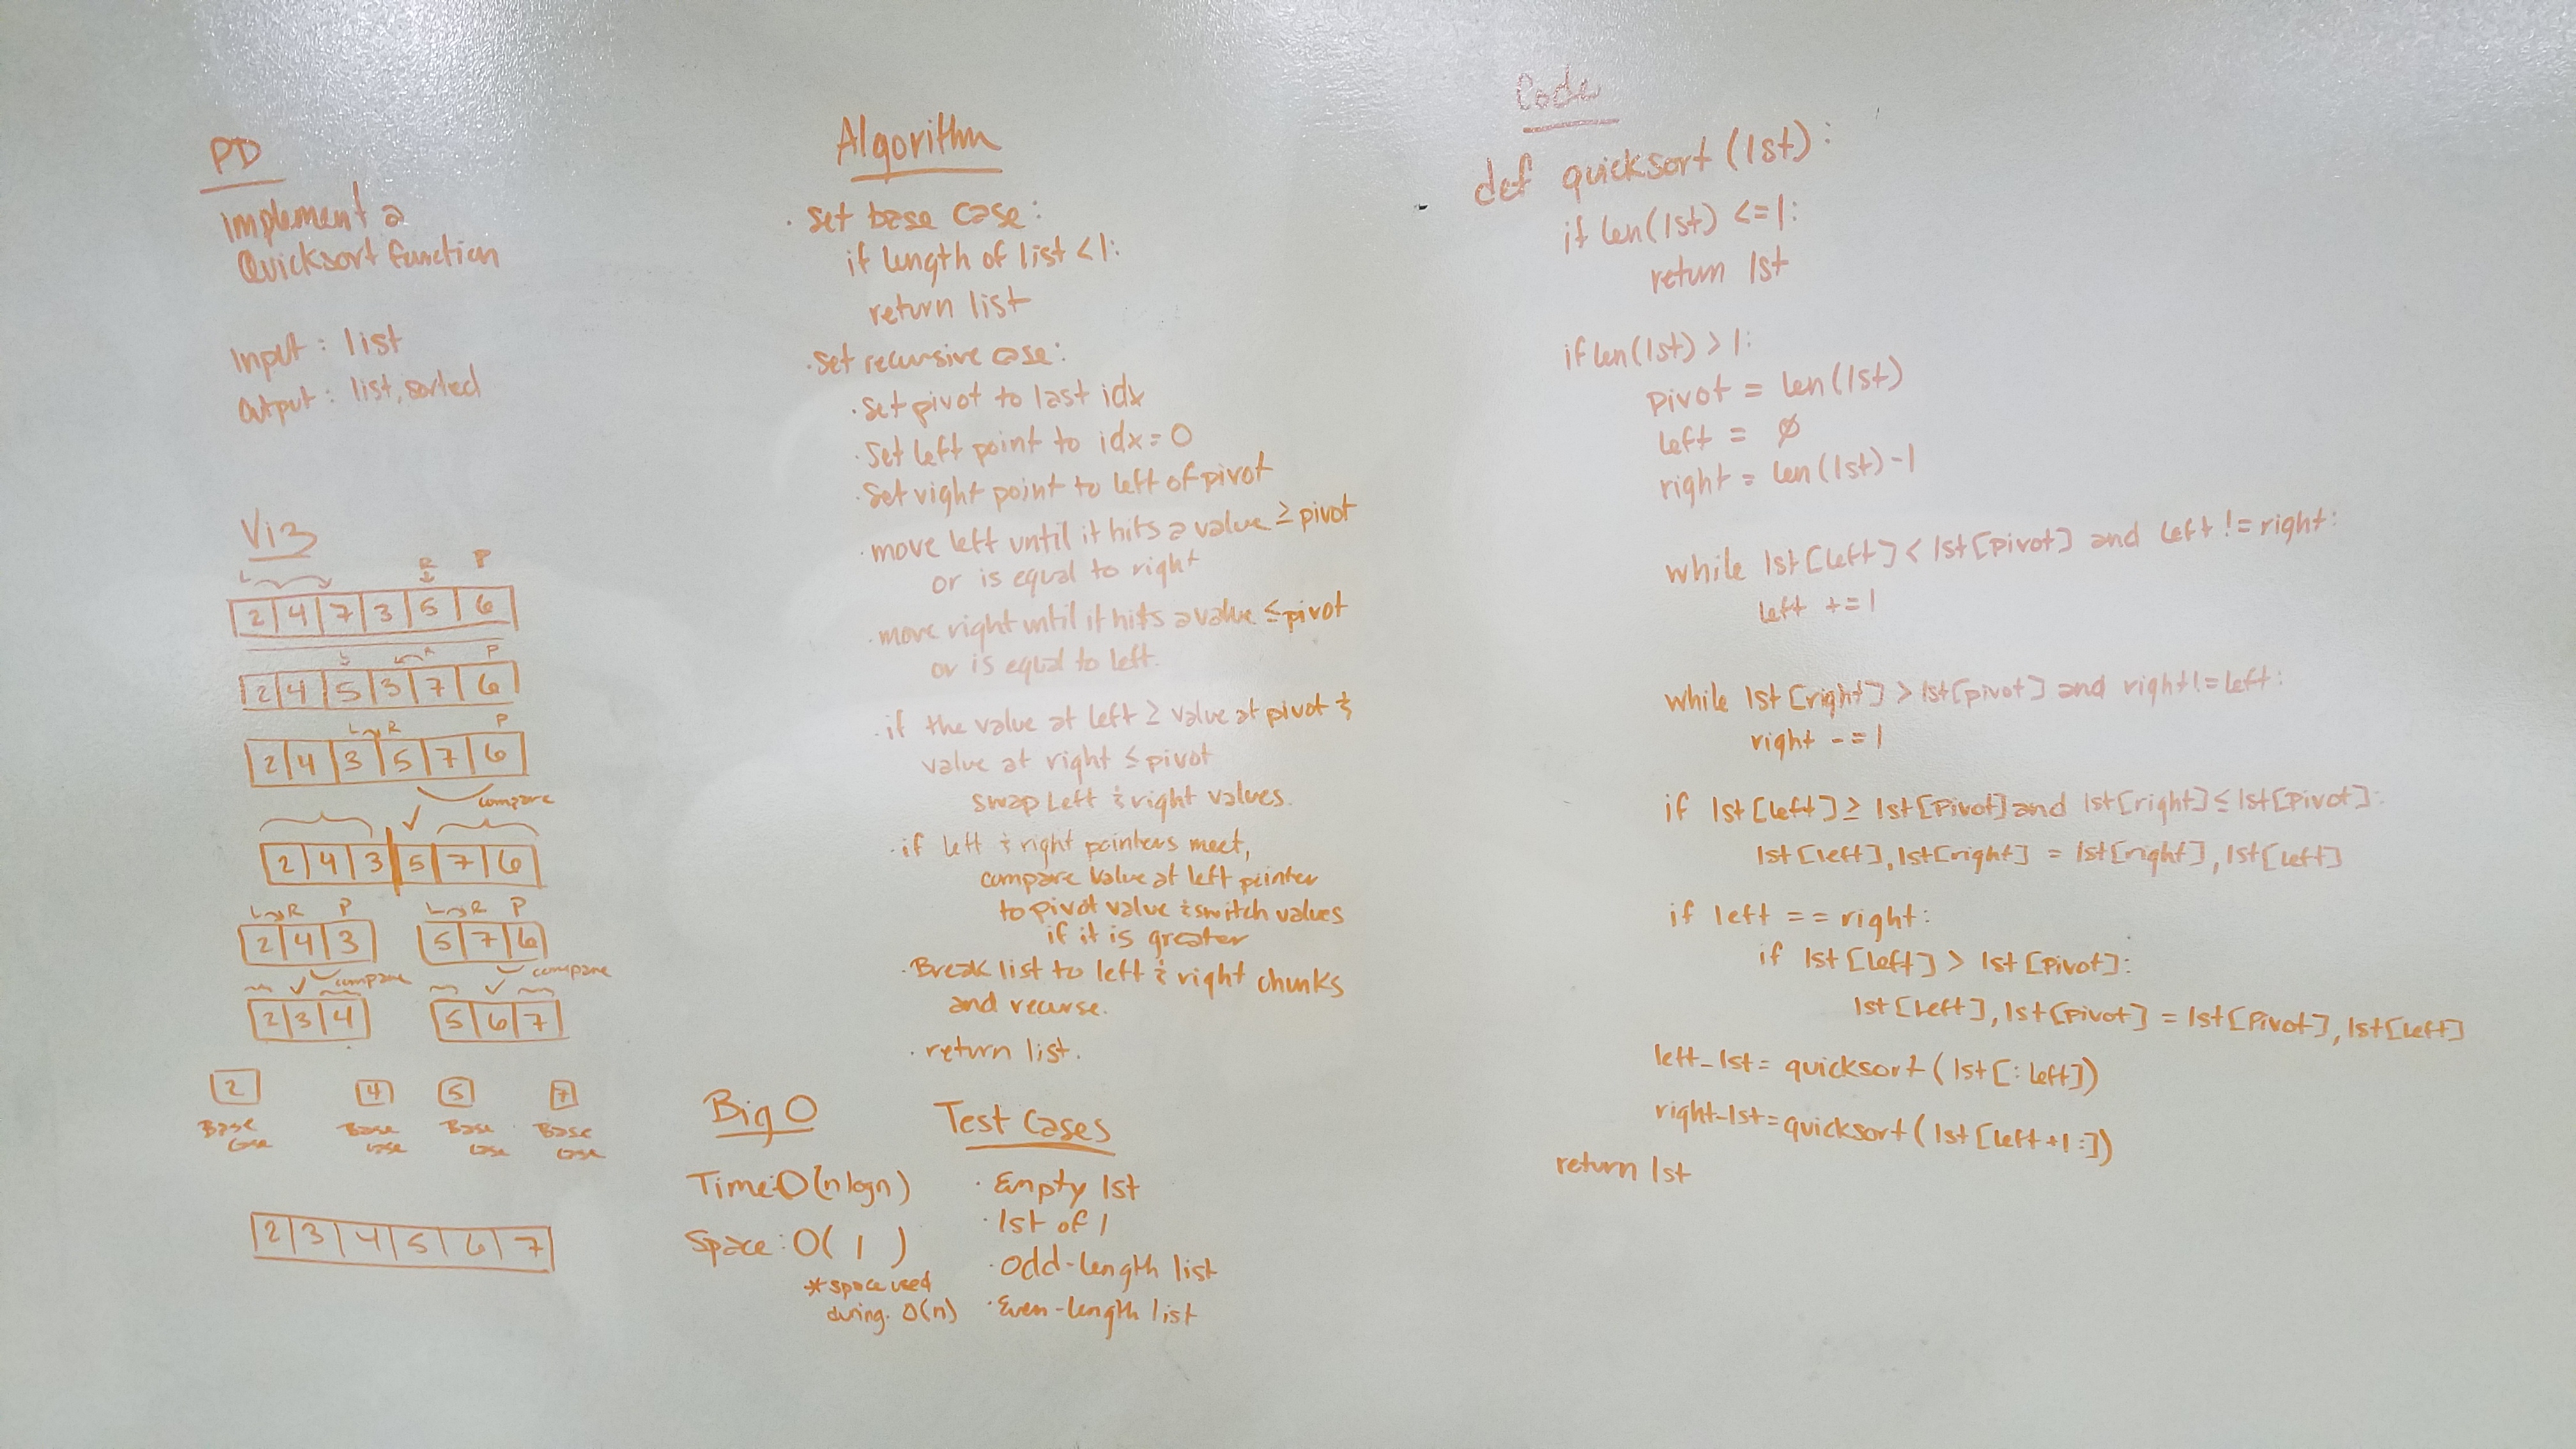 PD
Implement a
Quicksort function
Input: list
Output: list, sorted
Viz
L R P
2 4 7 3 5 6
L R P
2 4 5 3 7 6
L R P
2 4 3 5 7 6
compare
2 4 3 5 7 6
L R P L R P
2 4 3 5 7 6
compare compare
2 3 4 5 6 7
2 4 5 7
Base case Base case Base case Base case
2 3 4 5 6 7
Algorithm
· Set base case:
if length of list < 1:
return list
· Set recursive case:
· Set pivot to last idx
· Set left point to idx = 0
· Set right point to left of pivot
· move left until it hits a value ≥ pivot
or is equal to right
· move right until it hits a value ≤ pivot
or is equal to left.
· if the value at left ≥ value at pivot &
value at right ≤ pivot
swap left & right values.
· if left & right pointers meet,
compare value at left pointer
to pivot value & switch values
if it is greater
· Break list to left & right chunks
and recurse.
· return list.
Big O
Time: O(n log n)
Space: O( 1 )
* space used
during. O(n)
Test Cases
· Empty lst
· lst of 1
· Odd-length list
· Even-length list
Code
def quicksort (lst):
if len(lst) <= 1:
return lst
if len(lst) > 1:
pivot = len(lst)
left = Ø
right = len(lst) - 1
while lst[left] < lst[pivot] and left != right:
left += 1
while lst[right] > lst[pivot] and right != left:
right -= 1
if lst[left] ≥ lst[pivot] and lst[right] ≤ lst[pivot]:
lst[left], lst[right] = lst[right], lst[left]
if left == right:
if lst[left] > lst[pivot]:
lst[left], lst[pivot] = lst[pivot], lst[left]
left_lst = quicksort (lst[:left])
right_lst = quicksort (lst[left+1:])
return lst